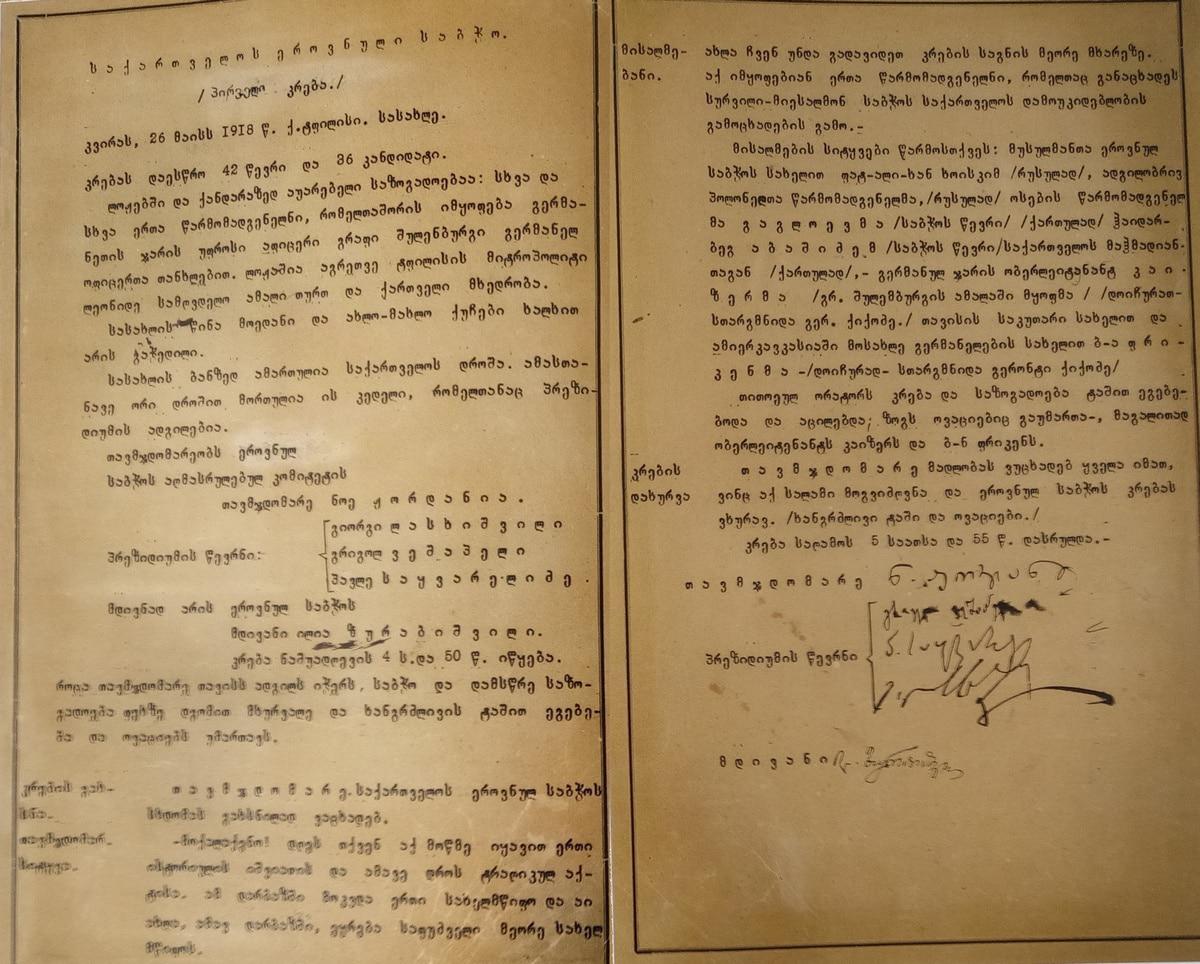 საქართველოს ეროვნული საბჭო.
/პირველი კრება./
კვირას, 26 მაისს 1918 წ. ქ.ტფილისი. სასახლე.
კრებას დაესწრო 42 წევრი და 36 კანდიდატი.
ლოჟებში და ქანდარაზედ აუარებელი საზოგადოებაა: სხვა და
სხვა ერთა წარმომადგენელნი, რომელთაშორის იმყოფება გერმა-
ნეთის ჯარის უფროსი აფიცერი გრაფი შულენბურგი გერმანელ
ოფიცერთა თანხლებით. ლოჟაშია აგრეთვე ტფილისის მიტროპოლიტი
ლეონიდე სამღვდელო ამალითურთ და ქართველი მხედრობა.
სასახლის წინა მოედანი და ახლო-მახლო ქუჩები ხალხით
არის გაჭედილი.
სასახლის ბანზედ ამართულია საქართველოს დროშა. ამასთა-
ნავე ორი დროშით მორთულია ის კედელი, რომელთანაც პრეზი-
დიუმის ადგილებია.
თავმჯდომარეობს ეროვნულ
საბჭოს აღმასრულებელ კომიტეტის
თავმჯდომარე ნოე ჟორდანია.
პრეზიდიუმის წევრნი:
გიორგი ლასხიშვილი
გრიგოლ ვეშაპელი
პავლე საყვარელიძე.
მდივნად არის ეროვნულ საბჭოს
მდივანი ილია ზურაბიშვილი.
კრება ნაშუადღევის 4 ს.და 50 წ. იწყება.
როცა თავმჯდომარე თავისს ადგილს იჭერს, საბჭო და დამსწრე საზო-
გადოება ფეხზე დგომით მხურვალე და ხანგრძლივის ტაშით ეგებე-
ბა და ოვაციებს უმართავს.
კრების გახ-
სნა.
თავმჯდომარე.საქართველოს ეროვნულ საბჭოს
სხდომას გახსნილად ვაცხადებ.
თავმჯდომარ.
სიტყვა.
-მოქალაქენო! დღეს თქვენ აქ მოწმე იყავით ერთი
ისტორიულის იშვიათის და ამავე დროს ტრაღიკულ აქ-
ტისა. ამ დარბაზში მოკვდა ერთი სახელმწიფო და აი
ახლა, ამავ დარბაზში, ეყრება საფუძველი მეორე სახელ
მწიფოს.
მისალმე-
ბანი.
ახლა ჩვენ უნდა გადავიდეთ კრების საგნის მეორე მხარეზე.
აქ იმყოფებიან ერთა წარმომადგენელნი, რომელთაც განაცხადეს
სურვილი-მიესალმონ საბჭოს საქართველოს დამოუკიდებლობის
გამოცხადების გამო.-
მისალმების სიტყვები წარმოსთქვეს: მუსულმანთა ეროვნულ
საბჭოს სახელით ფატ-ალი-ხან ხოისკიმ /რუსულად/, ადგილობრივ
პოლონელთა წარმომადგენელმა,/რუსულად/ ოსების წარმომადგენელ
მა გაგლოევმა /საბჭოს წევრი/ /ქართულად/ ჰაიდარ-
ბეგ აბაშიძემ /საბჭოს წევრი/საქართველოს მაჰმადიან-
თაგან /ქართულად/,- გერმანულ ჯარის ობერლეიტანანტ კაი-
ზერმა /გრ. შულემბურგის ამალაში მყოფმა / /დოიჩურათ-
სთარგმნიდა გერ. ქიქოძე./ თავისის საკუთარი სახელით და
ამიერკავკასიაში მოსახლე გერმანელების სახელით ბ-ა ფრი-
კენმა -/დოიჩურად- სთარგმნიდა გერონტი ქიქოძე/
თითოეულ ორატორს კრება და საზოგადოება ტაშით ეგებე-
ბოდა და აცილებდა; ზოგს ოვაციებიც გაუმართა-, მაგალითად
ობერლეიტენანტს კაიზერს და ბ-ნ ფრიკენს.
კრების
დახურვა
თავმჯდომარე მადლობას ვუცხადებ ყველა იმათ,
ვინც აქ სალამი მოგვიძღვნა და ეროვნულ საბჭოს კრებას
ვხურავ. /ხანგრძლივი ტაში და ოვაციები./
კრება საღამოს 5 საათსა და 55 წ. დასრულდა.-
თავმჯდომარე ნ. ჟორდანია
პრეზიდიუმის წევრნი
პ. საყვარელიძე
მდივანი ილ. ზურაბიშვილი